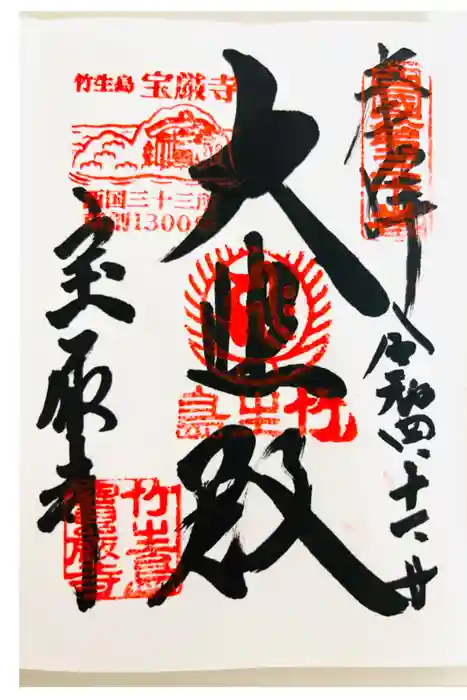 奉拝
令和四、十一、廿
大悲殿
竹生島
竹生島 宝厳寺
西国三十三所
草創1300年
宝厳寺
竹生島
寶厳寺